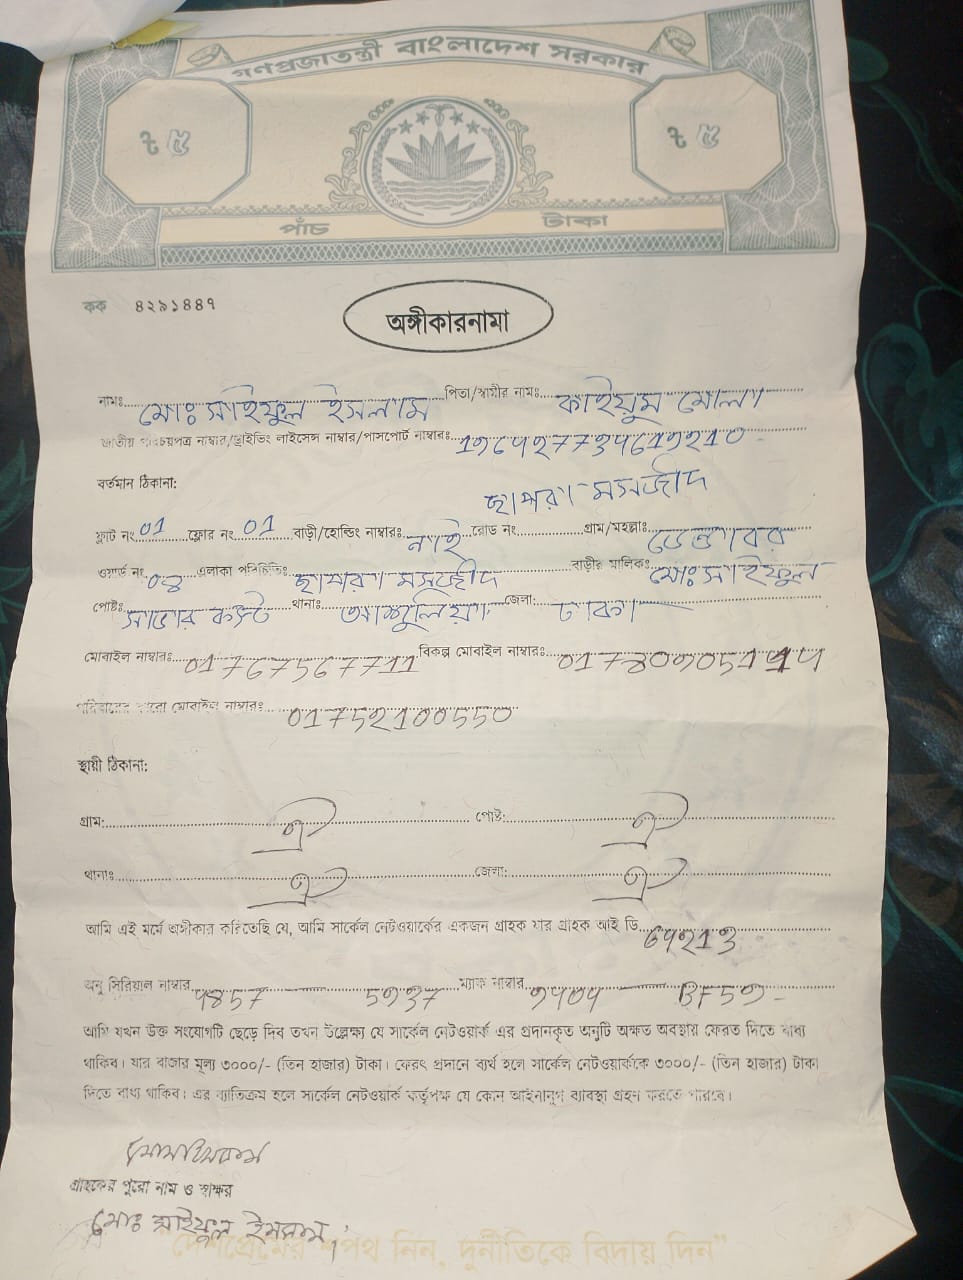 গণপ্রজাতন্ত্রী বাংলাদেশ সরকার
৳ ৫ ৳ ৫
পাঁচ টাকা
কক ৪২৯১৪৪৭
অঙ্গীকারনামা
নামঃ মোঃ সাইফুল ইসলাম পিতা/স্বামীর নামঃ কাইয়ুম মোল্লা
জাতীয় পরিচয়পত্র নাম্বার/ড্রাইভিং লাইসেন্স নাম্বার/পাসপোর্ট নাম্বারঃ
বর্তমান ঠিকানা: ছাপরা মসজীদ
ফ্লাট নং 01 ফ্লোর নং 01 বাড়ী/হোল্ডিং নাম্বারঃ নাই রোড নং গ্রাম/মহল্লাঃ ডেন্ডাবর
ওয়ার্ড নং 04 এলাকা পরিচিতিঃ ছাপরা মসজীদ বাড়ীর মালিকঃ মোঃ সাইফুল
পোষ্টঃ সাভার কন্ট থানাঃ আশুলিয়া জেলা: ঢাকা
মোবাইল নাম্বারঃ 01767567711 বিকল্প মোবাইল নাম্বারঃ
পরিবারের কারো মোবাইল নাম্বারঃ 01752100550
স্থায়ী ঠিকানা:
গ্রাম: ঐ পোষ্ট: ঐ
থানাঃ ঐ জেলা: ঐ
আমি এই মর্মে অঙ্গীকার করিতেছি যে, আমি সার্কেল নেটওয়ার্কের একজন গ্রাহক যার গ্রাহক আই ডি
অনু সিরিয়াল নাম্বার ম্যাক নাম্বার
আমি যখন উক্ত সংযোগটি ছেড়ে দিব তখন উল্লেক্ষ্য যে সার্কেল নেটওয়ার্ক এর প্রদানকৃত অনুটি অক্ষত অবস্থায় ফেরত দিতে বাধ্য
থাকিব। যার বাজার মূল্য ৩০০০/- (তিন হাজার) টাকা। ফেরৎ প্রদানে ব্যর্থ হলে সার্কেল নেটওয়ার্ককে ৩০০০/- (তিন হাজার) টাকা
দিতে বাধ্য থাকিব। এর ব্যাতিক্রম হলে সার্কেল নেটওয়ার্ক কর্তৃপক্ষ যে কোন আইনানুগ ব্যাবস্থা গ্রহন করতে পারবে।
গ্রাহকের পুরো নাম ও স্বাক্ষর
মোঃ সাইফুল ইসলাম
"দেশপ্রেমের শপথ নিন, দুর্নীতিকে বিদায় দিন"